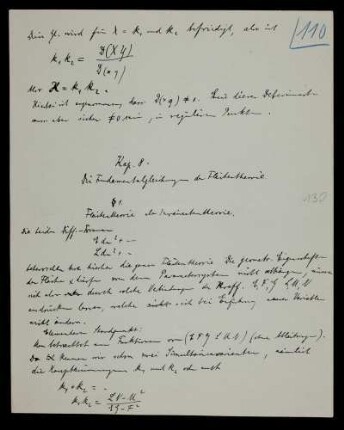 110
Diese Gl. wird für X = k₁ und k₂ befriedigt, also ist
k₁ k₂ = D(X Y) / D(x y)
Also K = k₁ k₂.
Hierbei ist angenommen, dass D(x y) ≠ 0. Diese Determinante
muss aber sicher ≠ 0 sein, in regulären Punkten.
Kap. 8.
Die Fundamentalgleichungen der Flächentheorie
§ 1.
Flächentheorie als Invariantentheorie.
130
Die beiden Diff.-Formen
E du² + –
L du² + –
beherrschen die ganze Flächentheorie. Die geometr. Eigenschaften
der Flächen dürfen von dem Parametersystem nicht abhängen,
sich also durch solche Verbindungen der E, F, G L, M, N
ausdrücken lassen, welche sich bei Einführung neuer Variablen
nicht ändern.
Elementarer Standpunkt:
Man betrachtet nur Funktionen von (E F G L M N) (ohne Ableitungen).
Da kennen wir schon zwei Simultaninvarianten, nämlich
die Hauptkrümmungen k₁ und k₂ oder auch
k₁ + k₂ = –
k₁ k₂ = (LN – M²) / (EG – F²)